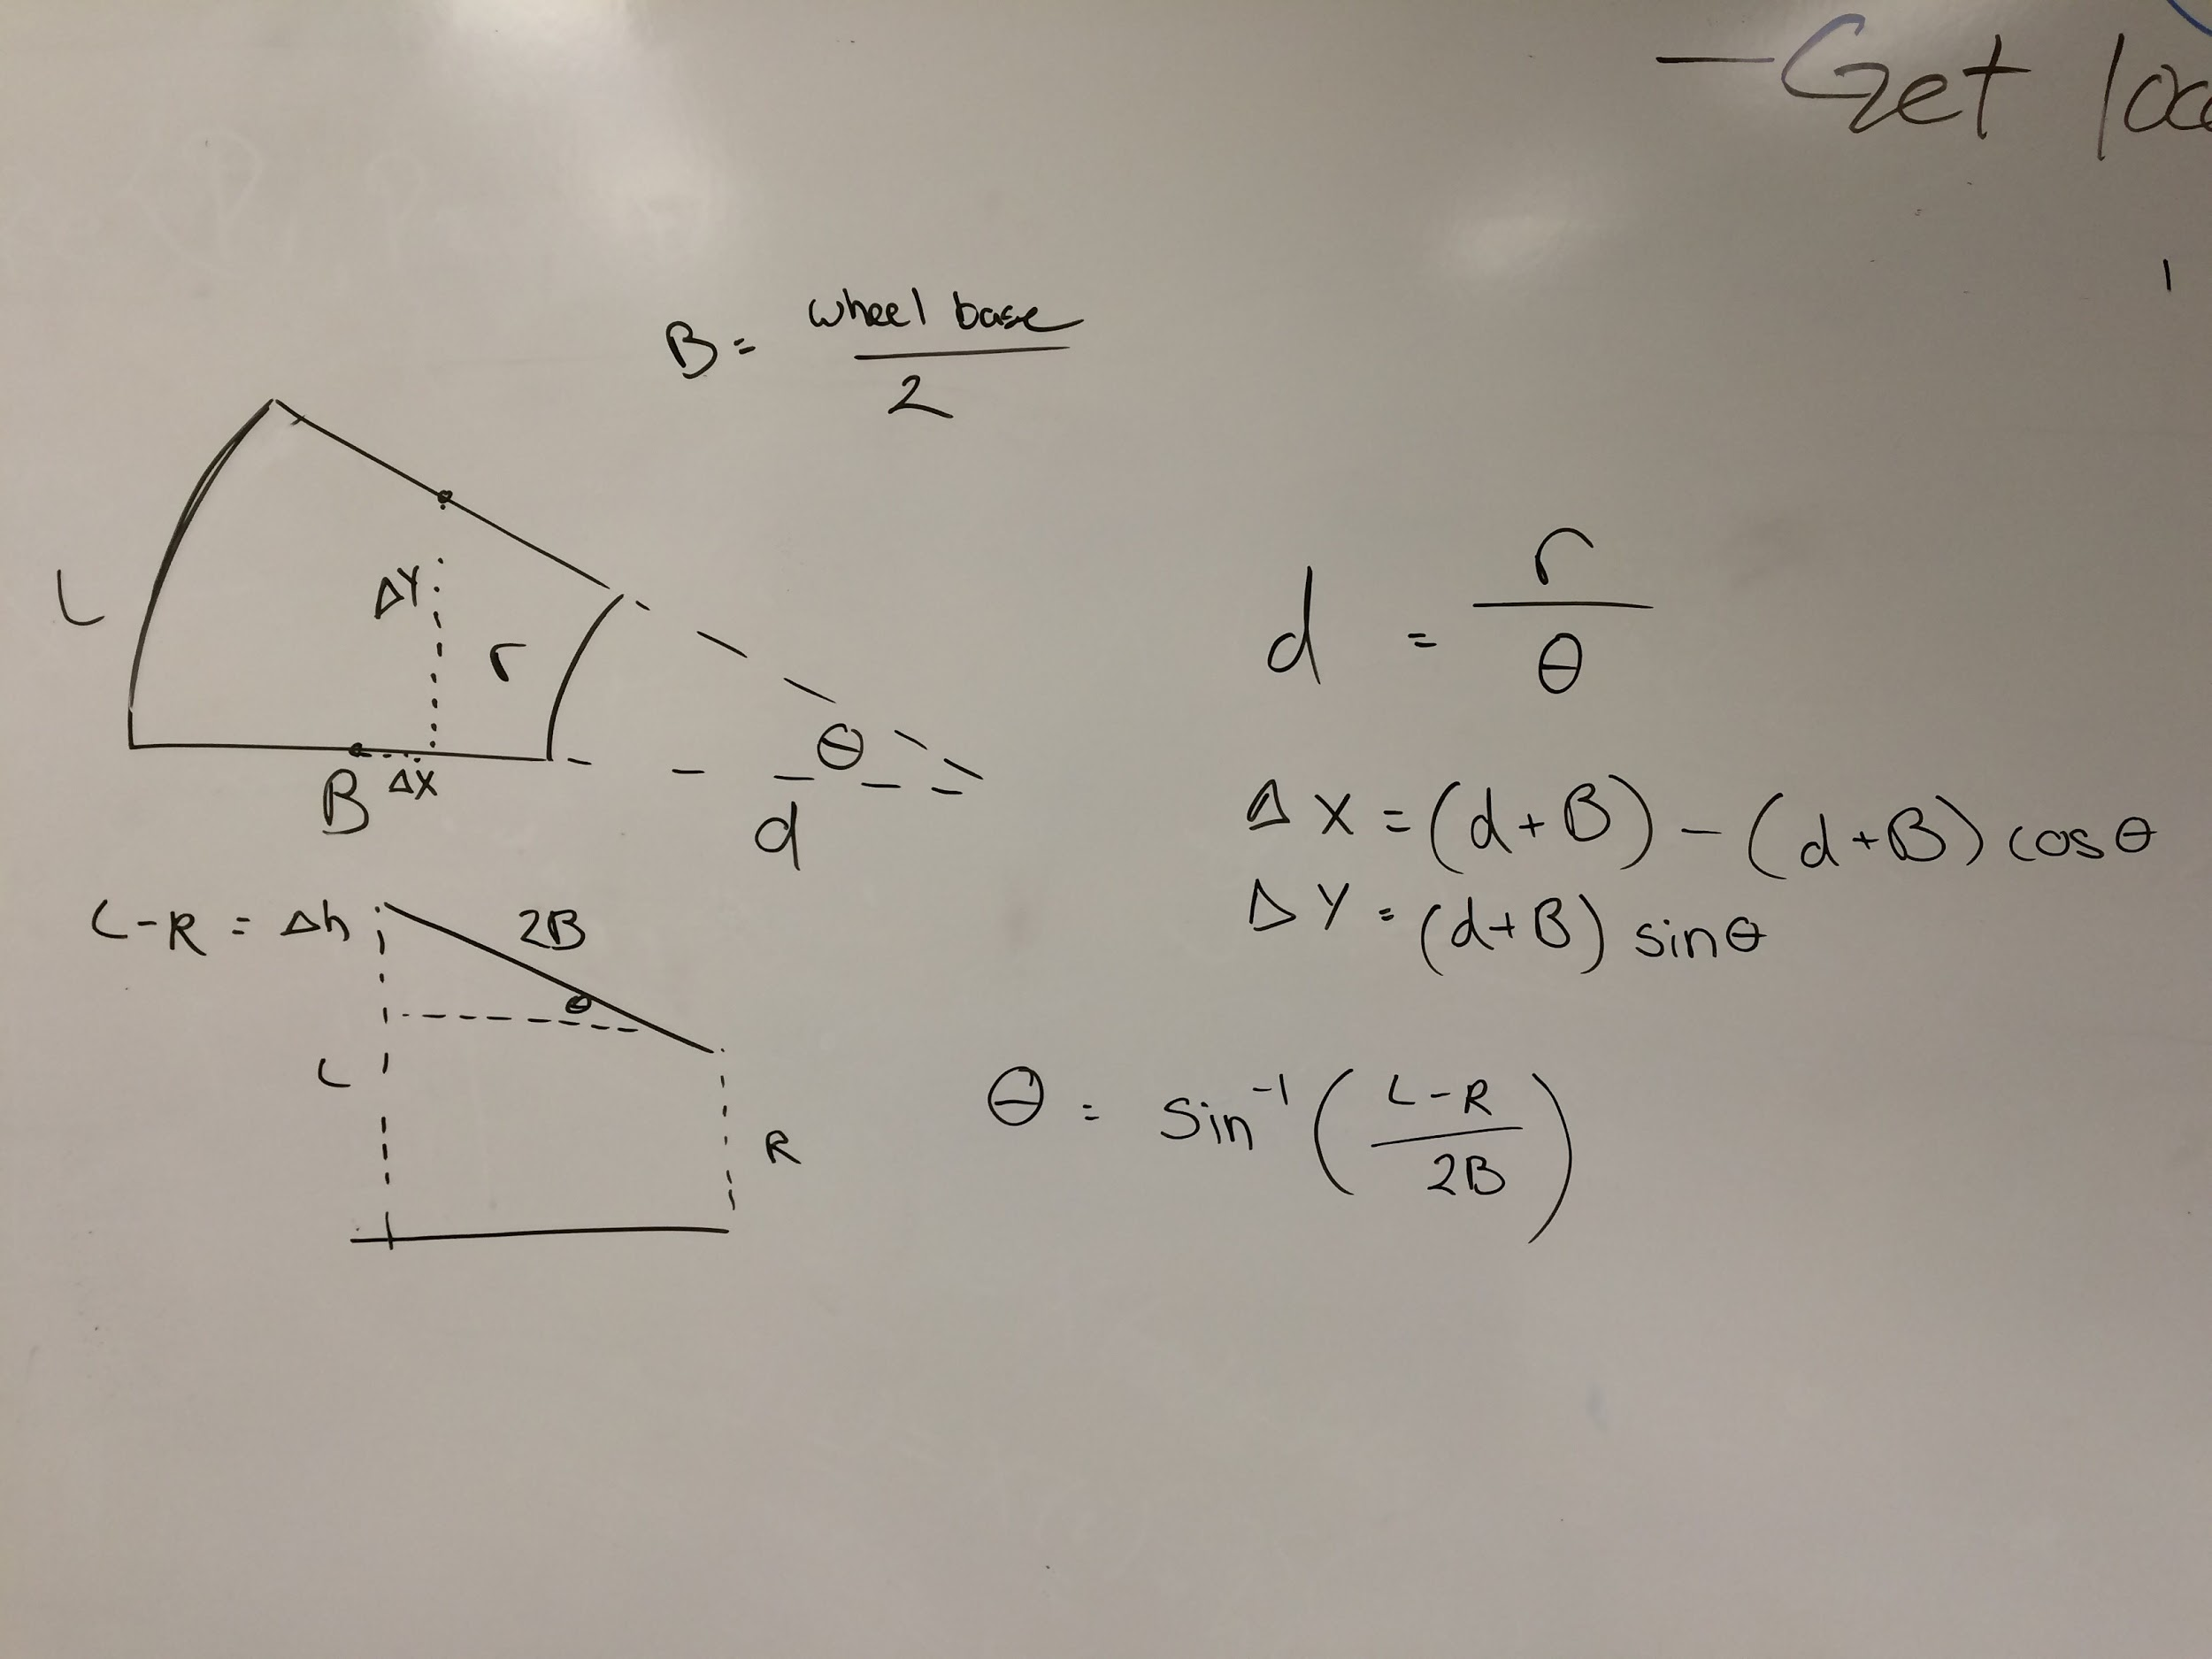 - Get
B = wheel base
2
L
ΔY
r
θ
B ΔX
d
d = r
θ
ΔX = (d+B) - (d+B) cosθ
ΔY = (d+B) sinθ
L-R = Δh
2B
θ
L
R
θ = sin⁻¹ ( L-R
2B )